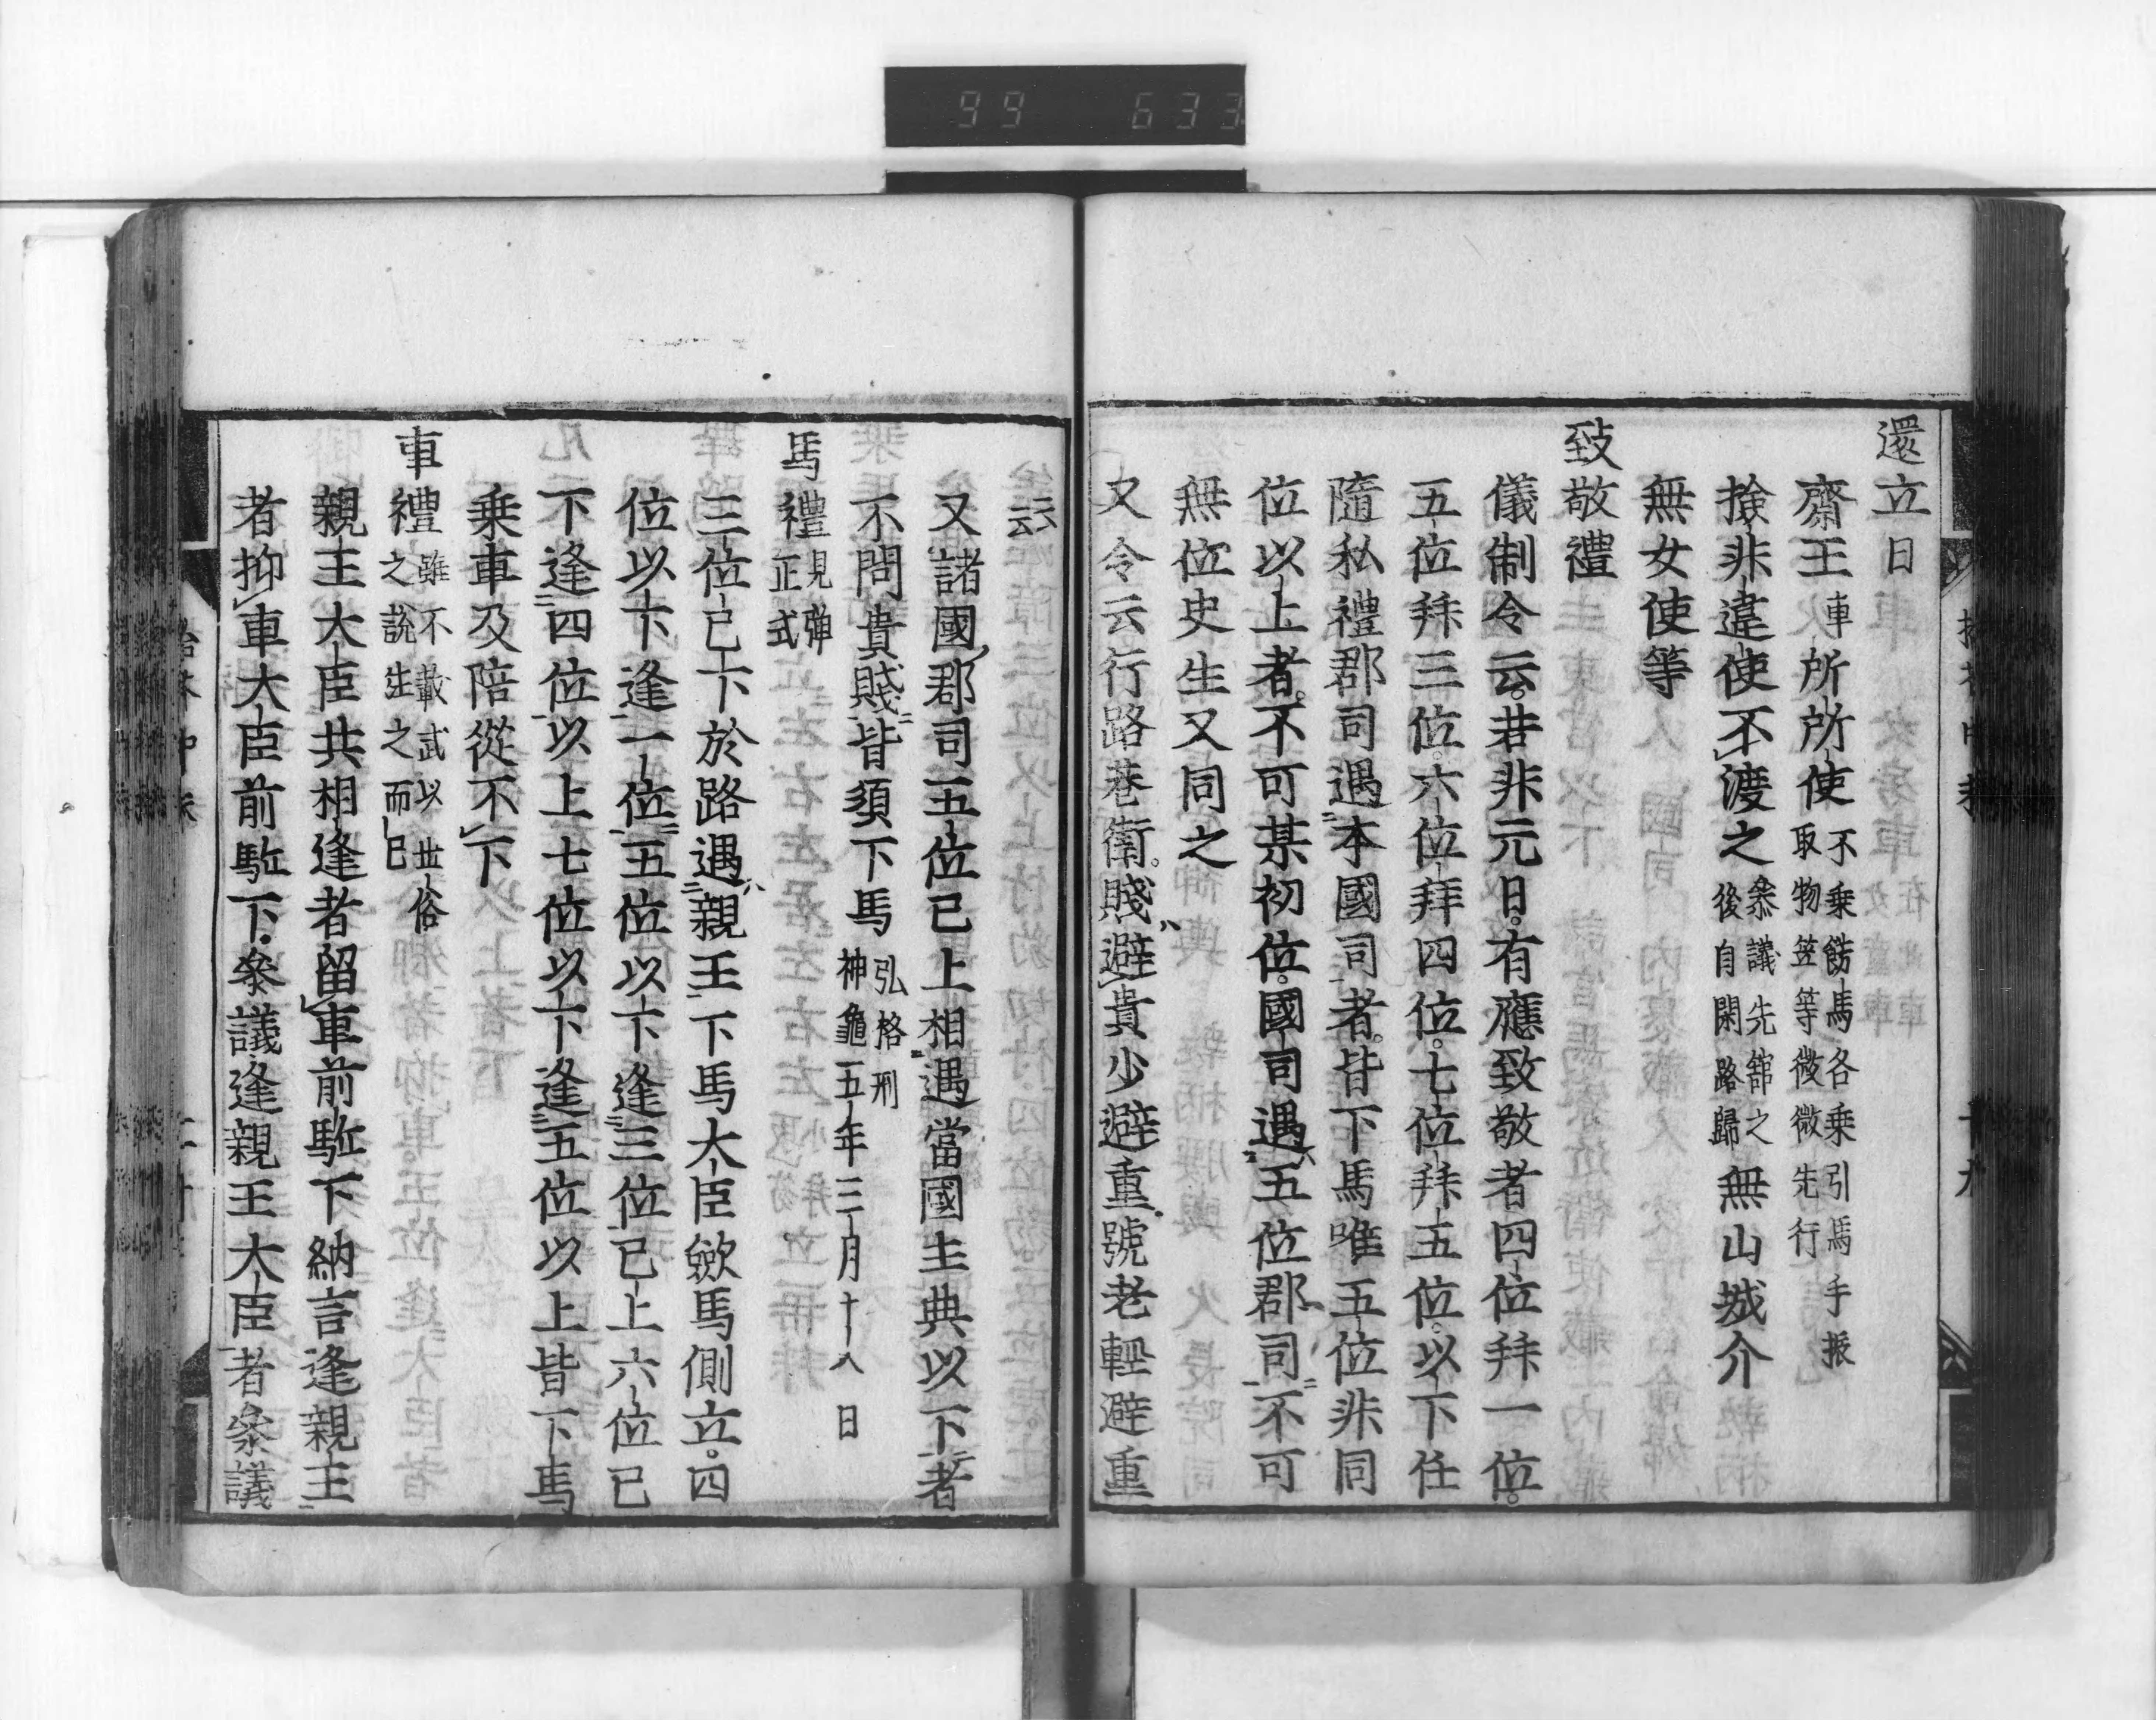 99 633
還立日
齋王車所所使不乗餝馬各乗引馬手振
取物笠等微微先行
撿非違使不渡之叅議先舘之
後自閑路歸無山城介
無女使等
致敬禮
儀制令云。若非元日。有應致敬者四位拜一位。
五位拜三位。六位拜四位。七位拜五位。以下任
隨私禮郡司遇本國司者。皆下馬唯五位非同
位以上者。不可某初位。國司遇五位郡司不可
無位史生又同之
又令云行路巷衛。賤避貴少避重。號老輕避重
云云
又諸國郡司五位已上相遇當國主典以下者
不問貴賤皆須下馬弘格刑
神龜五年三月十八日
馬禮見彈
正式
三位已下於路遇親王下馬大臣歛馬側立。四
位以下逢一位五位以下逢三位已上六位已
下逢四位以上七位以下逢五位以上皆下馬
乗車及陪從不下
車禮雖不載式以世俗
之説注之而已
親王大臣共相逢者留車前駈下納言逢親王
者抑車大臣前駈下。叅議逢親王大臣者叅議